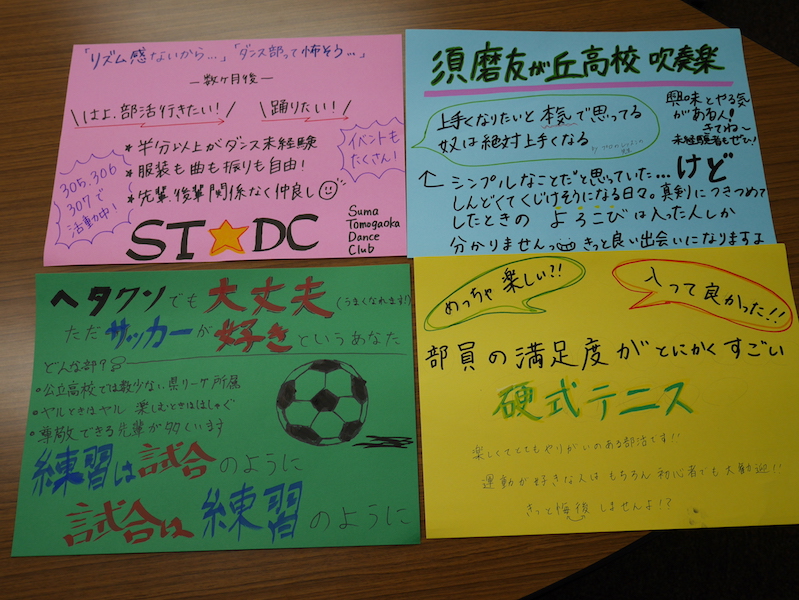 「リズム感ないから…」「ダンス部って怖そう…」
―数ヶ月後―
はよ、部活行きたい!
踊りたい!
*半分以上がダンス未経験
*服装も曲も振りも自由!
*先輩、後輩関係なく仲良し
イベントも
たくさん!
305.306
307で
活動中!
ST☆DC
Suma
Tomogaoka
Dance
Club
須磨友が丘高校 吹奏楽
上手くなりたいと本気で思ってる
奴は絶対上手くなる
興味とやる気
がある人!
きてね~
未経験者もぜひ!
↑ シンプルなことだと思っていた…けど
しんどくてくじけそうになる日々。真剣につきつめて
したときの よろこびは入った人しか
分かりませんっ きっと良い出会いになりますよ
ヘタクソでも大丈夫(うまくなれます!)
ただサッカーが好きというあなた
どんな部?
・公立高校では数少ない県リーグ所属
・ヤルときはヤル 楽しむときははしゃぐ
・尊敬できる先輩が多くいます
練習は試合のように
試合は練習のように
めっちゃ楽しい?!
入って良かった!!
部員の満足度がとにかくすごい
硬式テニス
楽しくてとてもやりがいのある部活です!!
運動が好きな人はもちろん初心者でも大歓迎!!
きっと後悔しませんよ!?